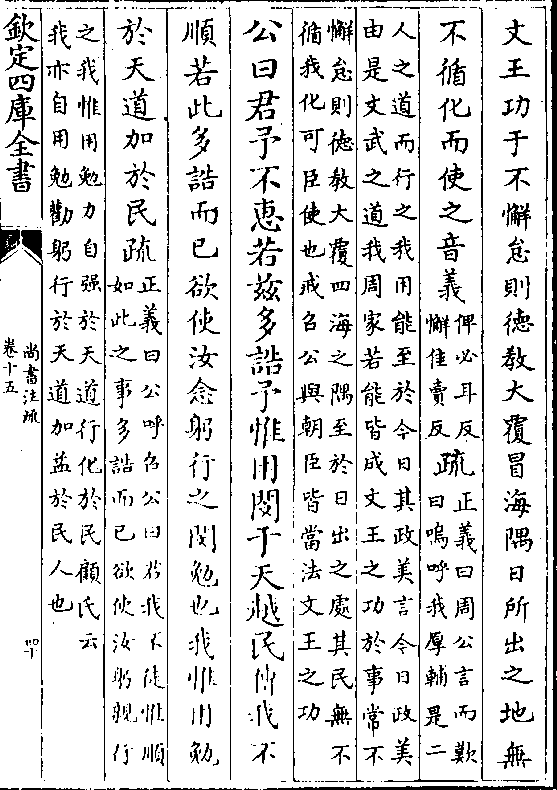 文王功于不懈怠則德教大覆冒海隅日所出之地無
不循化而使之音義
俾必耳反
懈佳賣反
疏
正義曰周公言而歎
曰嗚呼我厚輔是二
人之道而行之我用能至於今日其政美言今日政美
由是文武之道我周家若能皆成文王之功於事常不
懈怠則德教大覆四海之隅至於日出之處其民無不
循我化可臣使也戒召公與朝臣皆當法文王之功
公曰君予不惠若兹多誥予惟用閔于天越民傳我不
順若此多誥而已欲使汝念躬行之閔勉也我惟用勉
於天道加於民疏
正義曰公呼召公曰君我不徒惟順
如此之事多誥而已欲使汝躬親行
之我惟用勉力自强於天道行化於民顧氏云
我亦自用勉勸躬行於天道加益於民人也
欽定四庫全書
尚書注疏
卷十五
四十